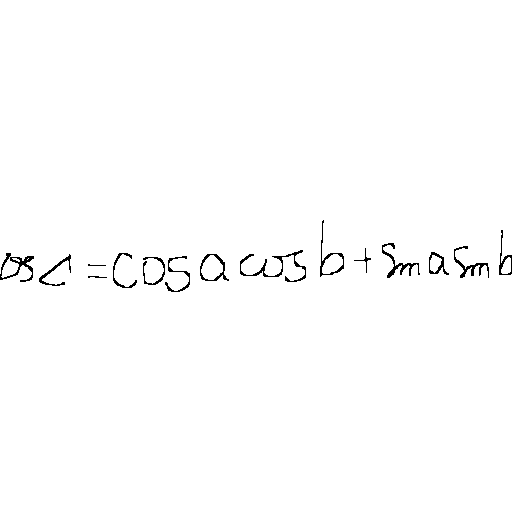 cos c = cos a cos b + sin a sin b